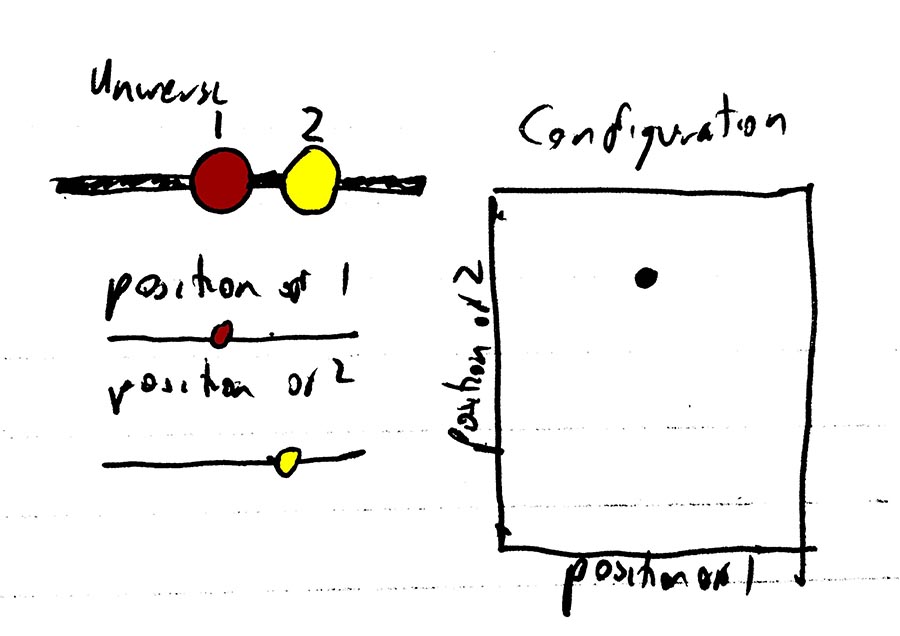 Universe
1 2
position of 1
position of 2
Configuration
position of 2
position of 1